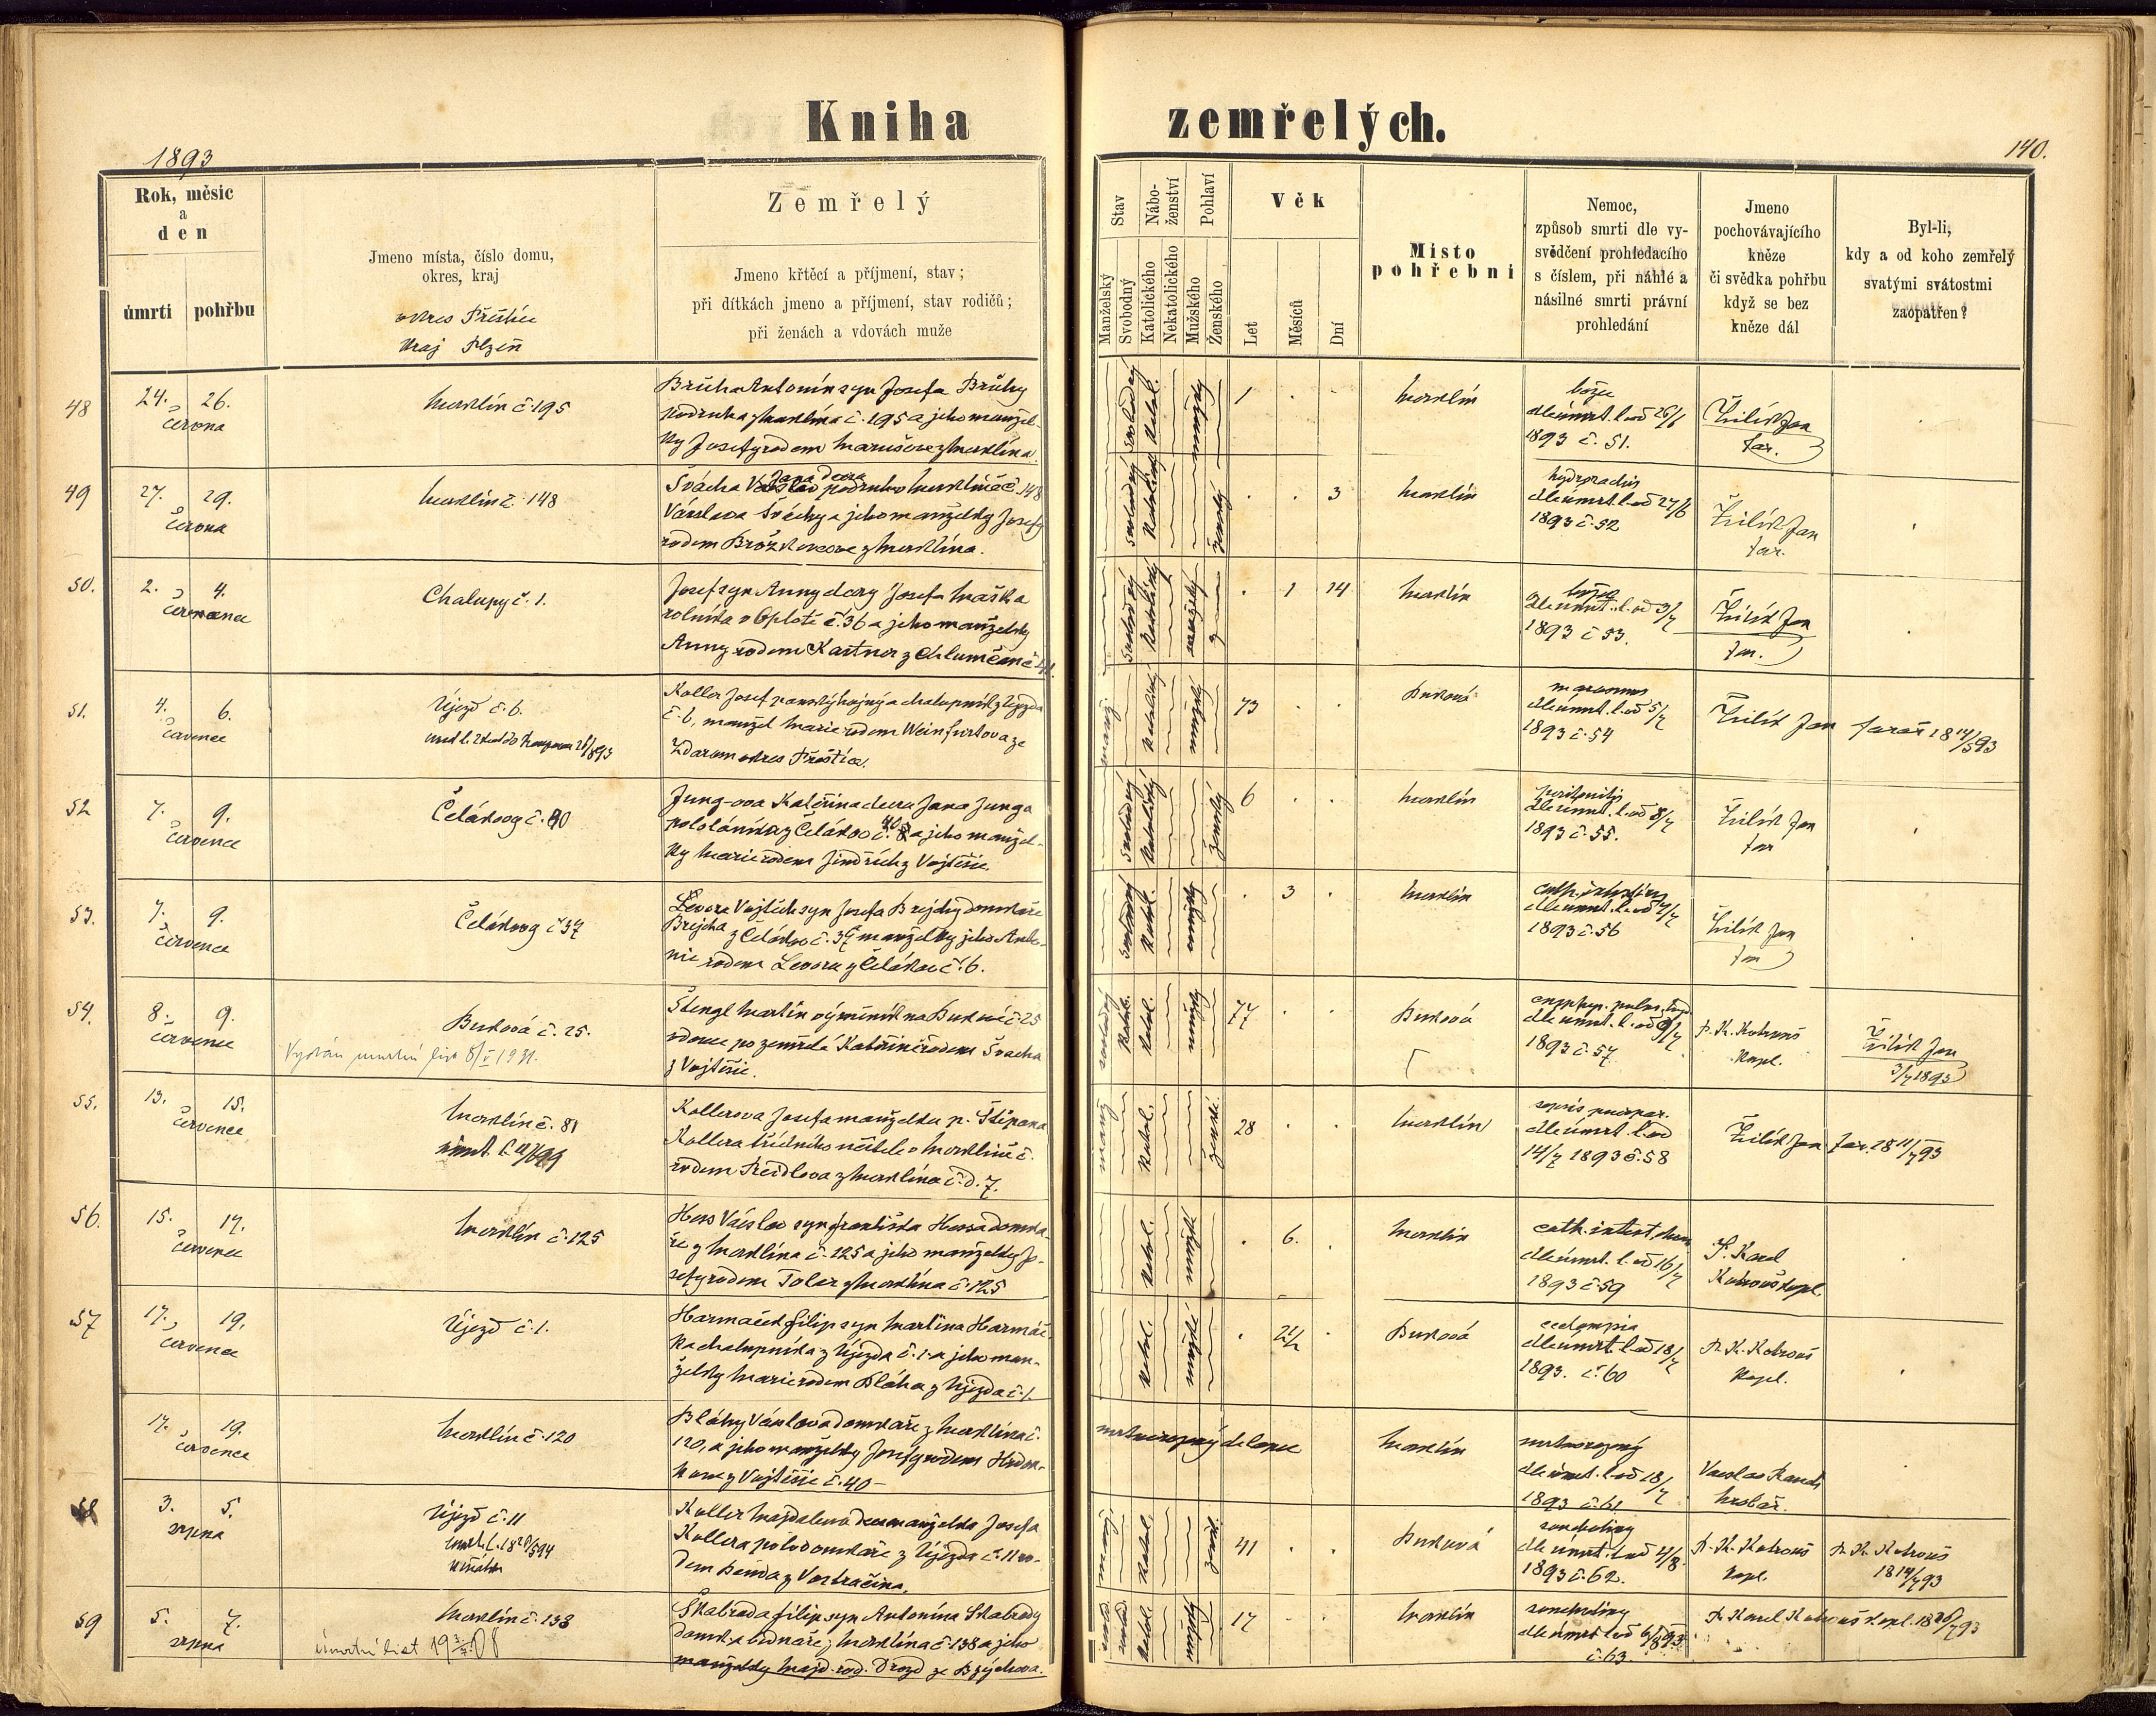 Kniha zemřelých.
1893
140.
Rok, měsíc
a
den
úmrtí
pohřbu
Jmeno místa, číslo domu,
okres, kraj
okres Přeštice
kraj Plzeň
Zemřelý
Jmeno křtěcí a příjmení, stav;
při dítkách jmeno a příjmení, stav rodičů;
při ženách a vdovách muže
Stav
Nábo-
ženství
Pohlaví
Manželský
Svobodný
Katolického
Nekatolického
Mužského
Ženského
Věk
Let
Měsíců
Dní
Místo
pohřební
Nemoc,
způsob smrti dle vy-
svědčení prohledacího
s číslem, při náhlé a
násilné smrti právní
prohledání
Jmeno
pochovávajícího
kněze
či svědka pohřbu
když se bez
kněze dál
Byl-li,
kdy a od koho zemřelý
svatými svátostmi
zaopatřen?
48
24. 26.
června
Merklín č. 195
Brůha Antonín syn Josefa Brůhy
podruha z Merklína č. 195 a jeho manžel-
ky Josefy rodem
svobodný
katol.
mužský
1
Merklín
dle úmrt. l. od 25/6
1893 č. 51.
Žilík Jan
far.
49
27. 29.
června
Merklín č. 148
Švácha podruha v Merklíně č. 148
Václava Šváchy a jeho manželky Josefy
rodem z Merklína.
svobodný
katolický
ženský
3
Merklín
dle úmrt. l. od 27/6
1893 č. 52
Žilík Jan
far.
50.
2. 4.
července
Chalupy č. 1.
Josef syn Anny dcery Josefa Maška
rolníka v Oplotě č. 36 a jeho manželky
Anny rodem Kastner z Chlumčan č.
svobodný
katolický
mužský
1 14
Merklín
dle úmrt. l. od 3/7
1893 č. 53.
Žilík Jan
far.
51.
4. 6.
července
Újezd č. 6.
Koller Josef panský hajný a chalupník z Újezda
č. 6, manžel Marie rodem Weinfurtova ze
Ždaru okres Přeštice.
manž.
katolický
mužský
73
Buková
marasmus
dle úmrt. l. od 5/7
1893 č. 54
Žilík Jan farář 18 14/5 93
52
7. 9.
července
Čelákovy č. 40
Jung-ova Kateřina dcera Jana Junga
pololáníka z Čelákov č. 40 a jeho manžel-
ky Marie rodem Jindřich z Vojtěšic.
svobodný
katolický
ženský
6
Merklín
peritonitis
dle úmrt. l. od 8/7
1893 č. 55.
Žilík Jan
far
53.
7. 9.
července
Čelákovy č 37
Levora Vojtěch syn Josefa Brejchy domkáře
Brejcha z Čelákov č. 37 manželky jeho Anto-
nie rodem Levora z Čelákov č. 6.
svobodný
katol.
mužský
3
Merklín
cath. intestin.
dle úmrt. l. od 8/7
1893 č. 56
Žilík Jan
far
54.
8. 9.
července
Buková č. 25.
Vydán úmrtní list 8/V 1931.
Štengl Martin výminkář na Bukové č. 25
vdovec po zemřelé Kateřině rodem Švacha
z Vojtěšic.
katol.
mužský
77
Buková
dle úmrt. l. od 9/7
1893 č. 57
P. K. Kotrouš
kapl.
Žilík Jan
3/7 1893
55.
13. 15.
července
Merklín č. 81
Kollerova Josefa manželka p. Štěpana
Kollera třídního učitele v Merklíně č.
rodem Preidlova z Merklína č. d. 7.
manž.
katol.
ženské
28
Merklín
sepsis puerper.
dle úmrt. l. od
14/7 1893 č. 58
Žilík Jan far. 18 11/7 93
56.
15. 17.
července
Merklín č. 125
Hess Václav syn Františka Hessa domká-
ře z Merklína č. 125 a jeho manželky Jo-
sefy rodem Tolar z Merklína č. 125
katol.
mužský
6.
Merklín
cath. intest.
dle úmrt. l. od 16/7
1893 č. 59
P. Karel
Kotrouš kapl.
57
17. 19.
července
Újezd č. 1.
Harmáček Filip syn Martina Harmáč-
ka chalupníka z Újezda č. 1. a jeho man-
želky Marie rodem Bláha z Újezda č. 1.
katol.
mužský
2 1/2
Buková
eclampsia
dle úmrt. l. od 18/7
1893. č. 60
P. K. Kotrouš
kapl.
17. 19.
července
Merklín č. 120
Bláhy Václava domkáře z Merklína č.
120, a jeho manželky Josefy rodem
z Vojtěšic č. 40 —
mrtvorozený chlapec
Merklín
mrtvorozený
dle úmrt. l. od 18/7
1893 č. 61
Václav
hrobař.
58
3. 5.
srpna
Újezd č. 11
Koller Majdalena manželka Josefa
Kollera polodomkáře z Újezda č. 11 ro-
dem Benda z Vostračína.
katol.
žensk.
41
Buková
dle úmrt. l. od 4/8
1893 č. 62.
P. K. Kotrouš
kapl.
P. K. Kotrouš
18 14/7 93
59
5. 7.
srpna
Merklín č. 138
Úmrtní list
Škabrada Filip syn Antonína Škabrady
domk. a bednáře z Merklína č. 138 a jeho
manželky Majd. rod. Drozd ze Bzýchova.
svobod.
katol.
mužský
17
Merklín
dle úmrt. l. od 6/8 93
č. 63
P. Karel Kotrouš kapl. 18 26/7 93